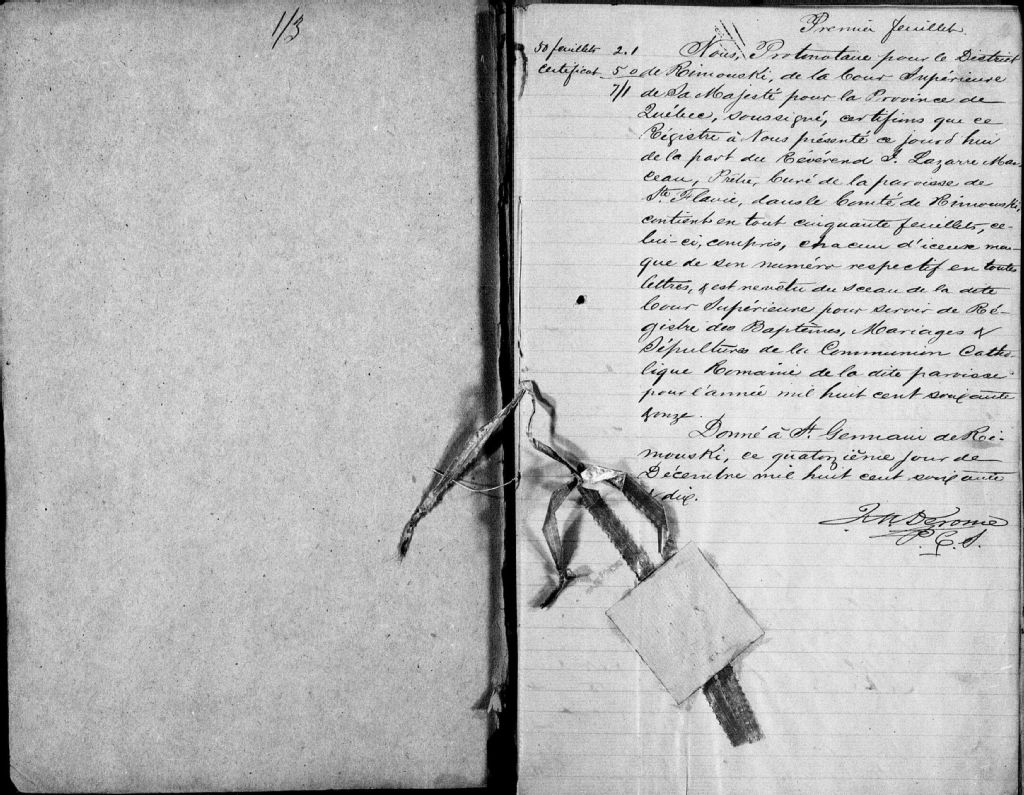 1/3
Premier feuillet.
50 feuillets 2.1
certificat 5 0
7/1
Nous, Protonotaire pour le District
de Rimouski, de la Cour Supérieure
de Sa Majesté pour la Province de
Québec, soussigné, certifions que ce
Régistre à Nous présenté ce jourd'hui
de la part du Révérend J. Lazarre Mar-
ceau, Prêtre, Curé de la paroisse de
Ste. Flavie, dans le Comté de Rimouski,
contient en tout cinquante feuillets, ce-
lui-ci, compris, chacun d'iceux mar-
qué de son numéro respectif en toutes
lettres, & est revêtu du sceau de la dite
Cour Supérieure pour servir de Ré-
gistre des Baptêmes, Mariages &
Sépultures de la Communion Catho-
lique Romaine de la dite paroisse
pour l'année mil huit cent soixante
& onze.
Donné à St. Germain de Ri-
mouski, ce quatorzième jour de
Décembre mil huit cent soixante
& dix.
Derome
P. C. S.